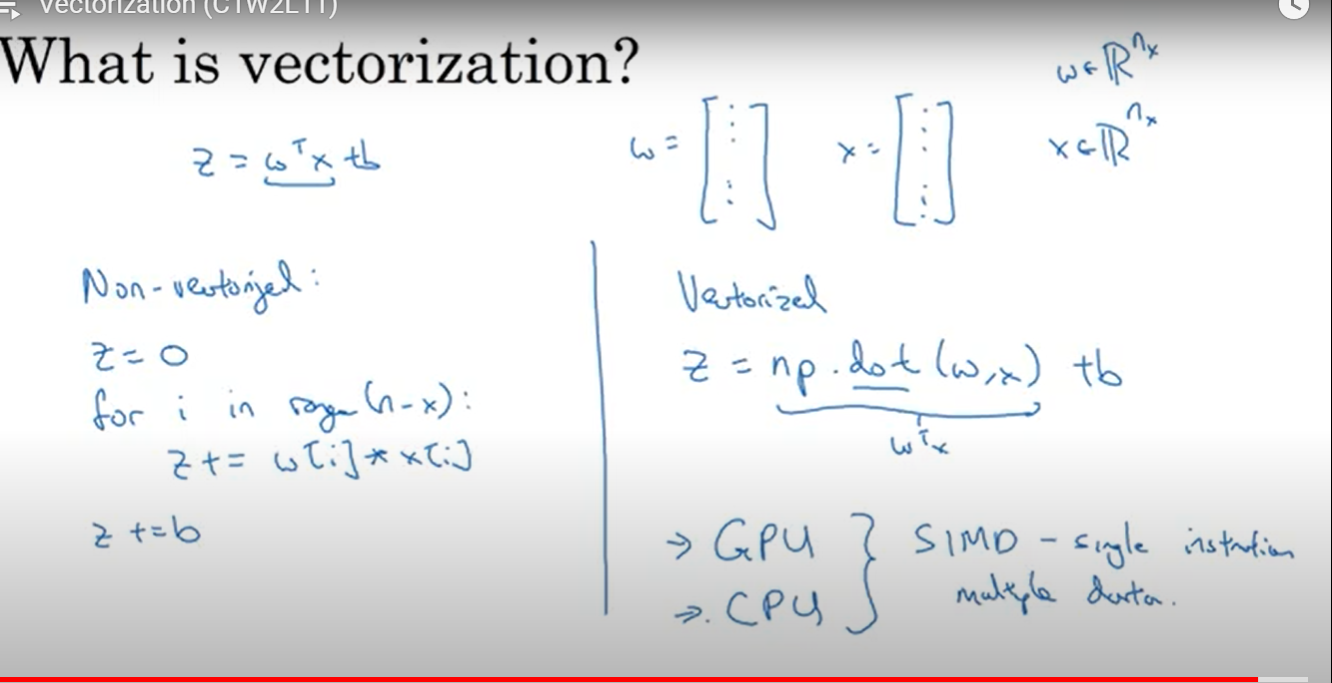 Vectorization (C1W2L11)
What is vectorization?
z = wᵀx + b
w = [⋮ ⋮] x = [⋮ ⋮]
w ∈ ℝⁿˣ
x ∈ ℝⁿˣ
Non-vectorized:
z = 0
for i in range(n-x):
z += w[i] * x[i]
z += b
Vectorized
z = np.dot(w,x) + b
wᵀx
→ GPU
→ CPU
} SIMD - single instruction
multiple data.